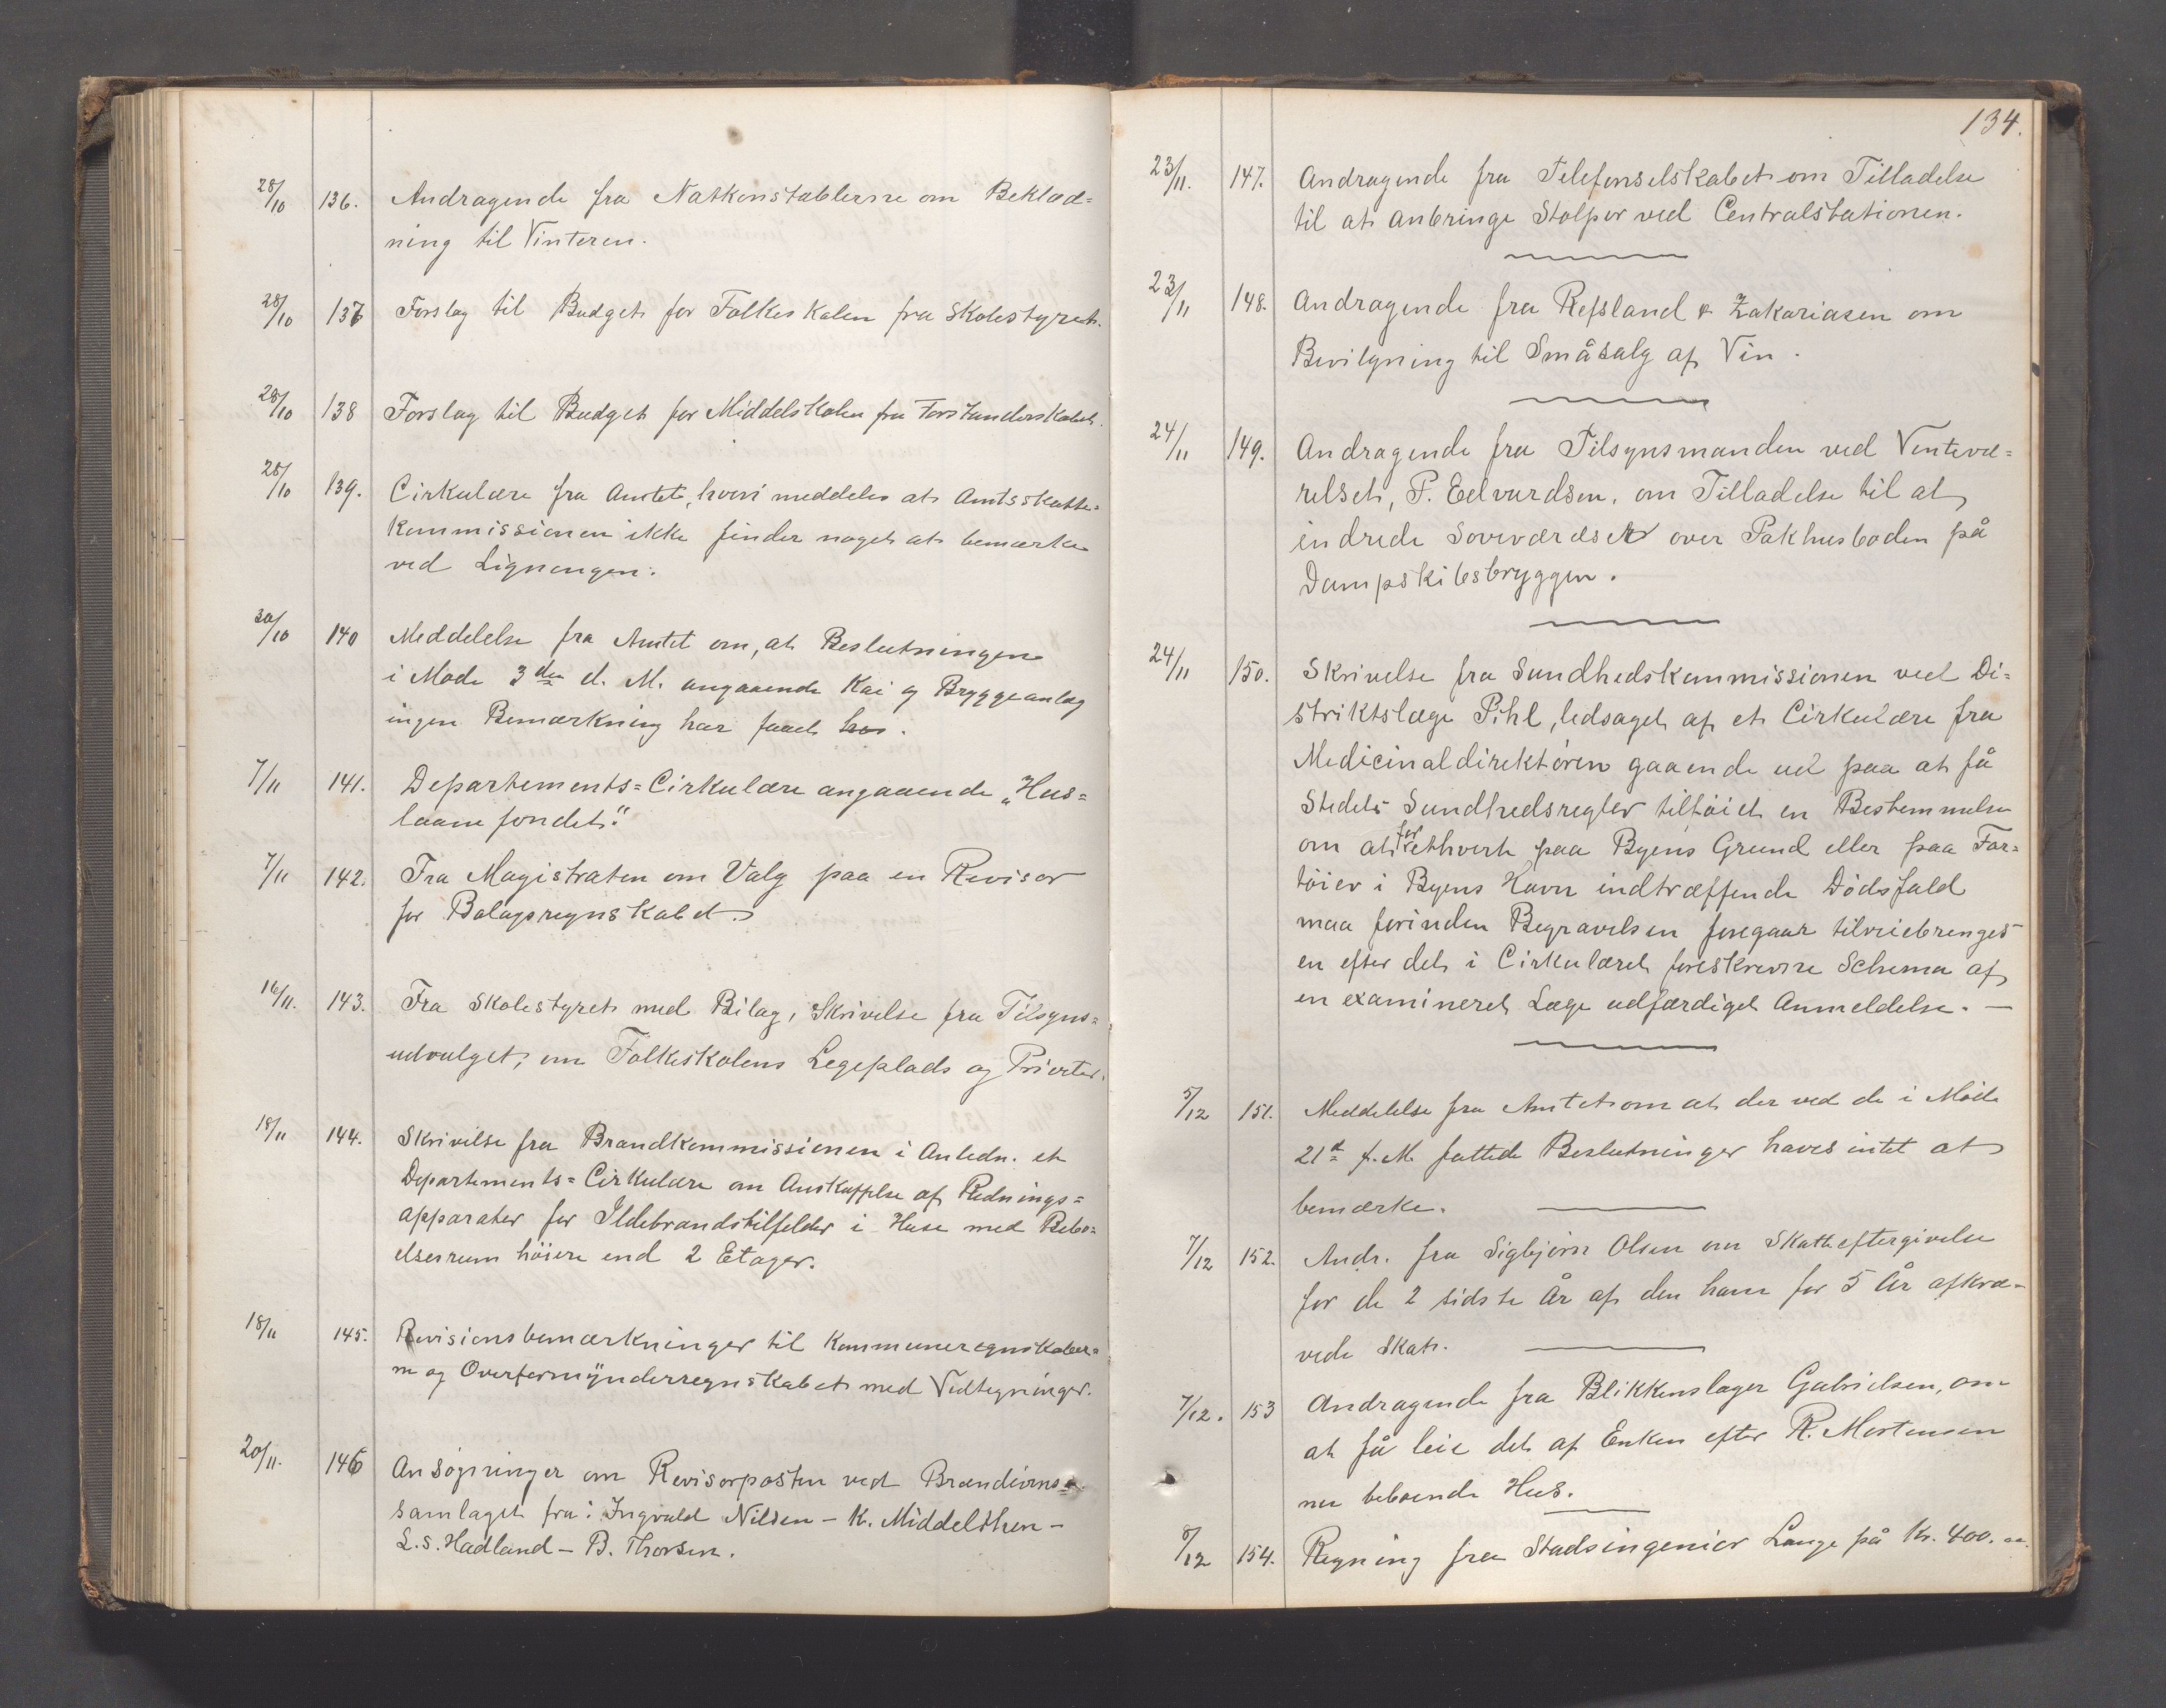 28/10 136. Andragende fra Natkonstablerne om Beklæd=
ning til Vinteren.
28/10 137 Forslag til Budget for Folkeskolen fra Skolestyret.
28/10 138 Forslag til Budget for Middelskolen fra Forstanderskabet.
28/10 139. Cirkulære fra Amtet, hvori meddeles at Amtsskatte=
kommissionen ikke finder noget at bemærke
ved Ligningen.
30/10 140 Meddelelse fra Amtet om, at Beslutningen
i Møde 3den d. M. angaaende Kai og Bryggeanlæg
ingen Bemærkning har faaet hos.
7/11 141. Departements=Cirkulære angaaende „Hus=
laanefondet."
7/11 142. Fra Magistraten om Valg paa en Revisor
for Bolagsregnskabet.
16/11. 143. Fra Skolestyret med Bilag, Skrivelse fra Tilsyns=
udvalget, om Folkeskolens Legeplads og Priveter.
18/11 144. Skrivelse fra Brandkommissionen i Anledn. et
Departements=Cirkulære om Anskaffelse af Rednings=
apparater for Ildebrandstilfelder i Huse med Bebo=
elsesrum höiere end 2 Etager.
18/11 145. Revisionsbemærkninger til Kommuneregnskaber=
ne og Overformynderregnskabet med Vedtegninger.
20/11. 146 Ansøgninger om Revisorposten ved Brændevins=
samlaget fra: Ingvald Nilsen – K. Middelthon –
L. S. Hadland – B. Thorsen.
134.
23/11. 147. Andragende fra Telefonselskabet om Tilladelse
til at anbringe Stolper ved Centralstationen.
23/11 148. Andragende fra Refsland & Zakariasen om
Bevilgning til Småsalg af Vin.
24/11 149. Andragende fra Tilsynsmanden ved Ventevæ=
relset, P. Edvardsen, om Tilladelse til at
indrede Soveværelset over Pakhusboden på
Dampskibsbryggen.
24/11 150. Skrivelse fra Sundhedskommissionen ved Di=
striktslæge Pihl, ledsaget af et Cirkulære fra
Medicinaldirektøren gaaende ud paa at få
Stedets Sundhedsregler tilføiet en Bestemmelse
om at for ethvert paa Byens Grund eller paa Far=
tøier i Byens Havn indtræffende Dødsfald
maa forinden Begravelsen foregaar tilveiebringes
en efter det i Cirkulæret foreskrevne Schema af
en examineret Læge udfærdiget Anmeldelse. –
5/12 151. Meddelelse fra Amtet om at der ved de i Møde
21de f. M. fattede Beslutninger haves intet at
bemærke.
7/12 152. Andr. fra Sigbjørn Olsen om Skatteeftergivelse
for de 2 sidste År af den ham for 5 År afkræ=
vede Skat.
7/12. 153 Andragende fra Blikkenslager Gabrielsen, om
at få leie det af Enken efter R. Mortensen
nu beboende Hus.
8/12 154. Regning fra Stadsingeniør Lange på Kr. 400.